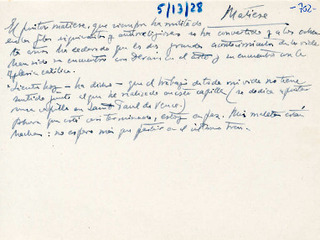 5/13/28 Matisse -702-
El pintor Matisse, que siempre ha militado
en las filas izquierdistas y antirreligiosas se ha convertido y a los ochenta
años ha declarado que los dos grandes acontecimientos de su vida
han sido su encuentro con Derain y su encuentro con la
Iglesia católica.
"Siento hoy – ha dicho – que el trabajo de toda mi vida no tiene
sentido junto al que he realizado en esta capilla (se dedica a pintar
una capilla en Saint Paul de Vence).
Ahora que está casi terminada, estoy en paz. Mis maletas están
hechas: no espero más que partir en el último tren.